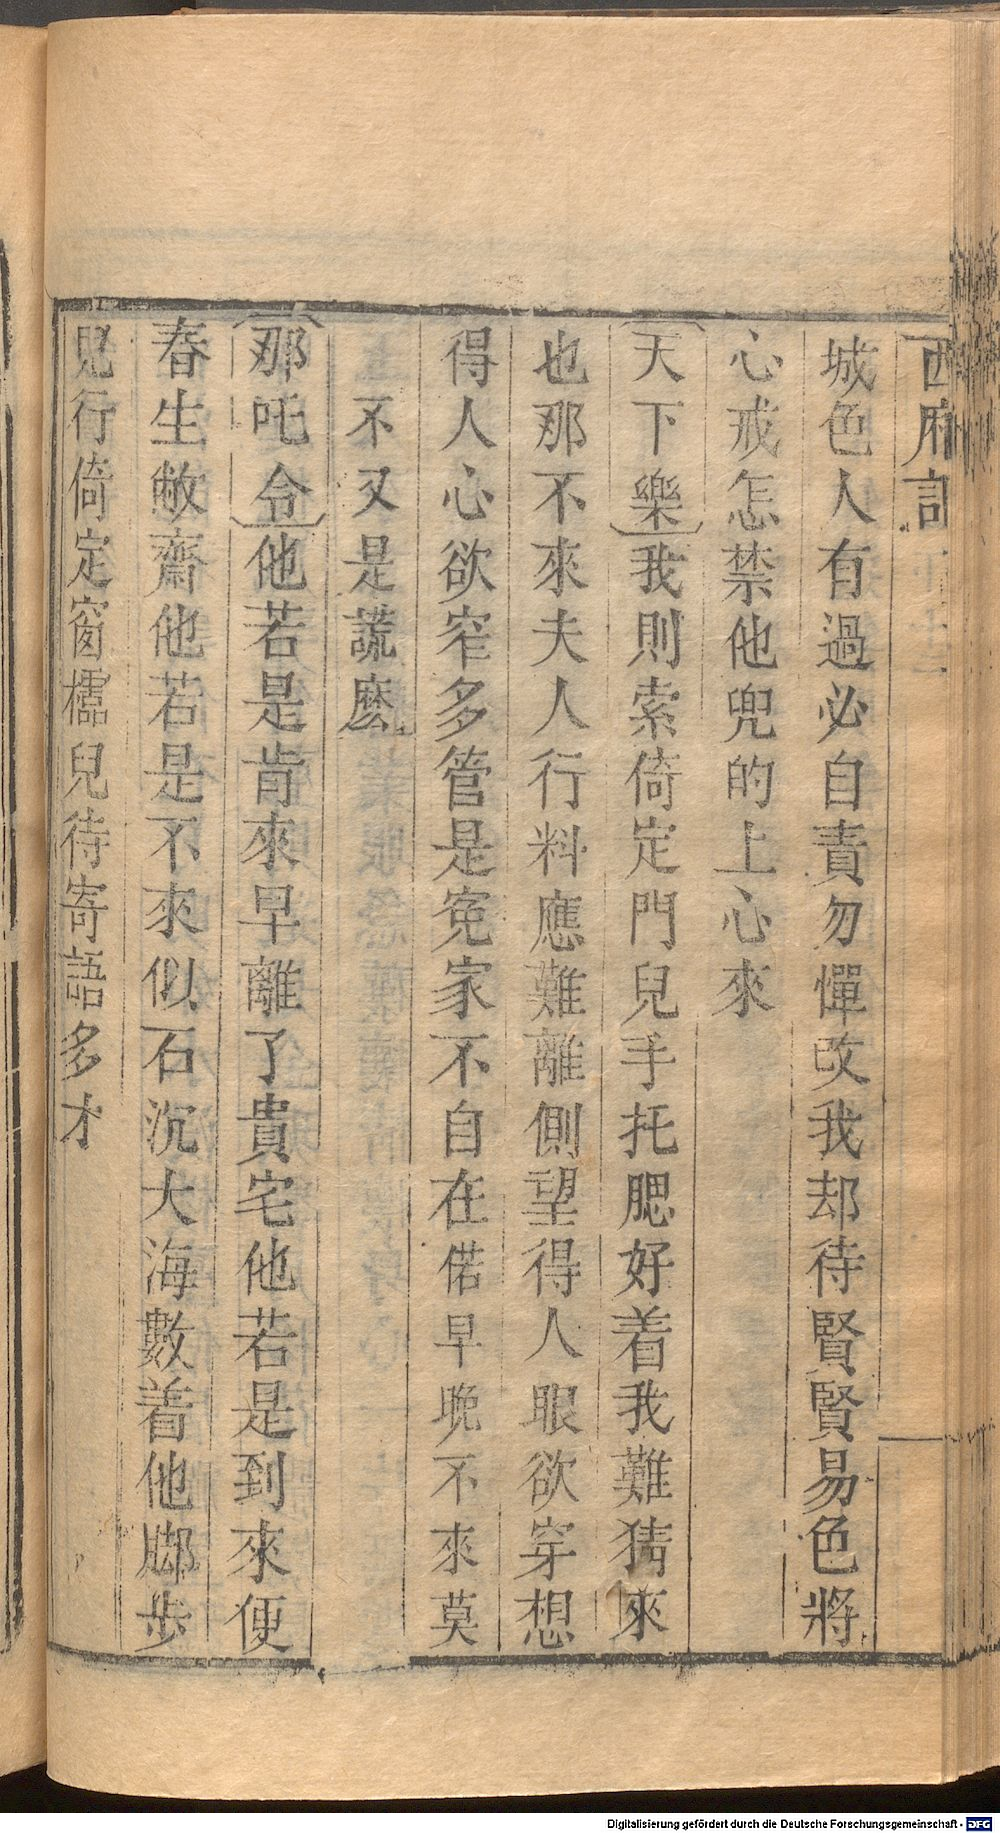 西廂記
城色人有過必自責勿憚改我却待賢賢易色將
心戒怎禁他兜的上心來
天下樂我則索倚定門兒手托腮好着我難猜來
也那不來夫人行料應難離側望得人眼欲穿想
得人心欲窄多管是寃家不自在偌早晚不來莫
不又是謊麽
那吒令他若是肯來早離了貴宅他若是到來便
春生敝齋他若是不來似石沉大海數着他脚步
兒行倚定窗櫺兒待寄語多才
Digitalisierung gefördert durch die Deutsche Forschungsgemeinschaft - DFG